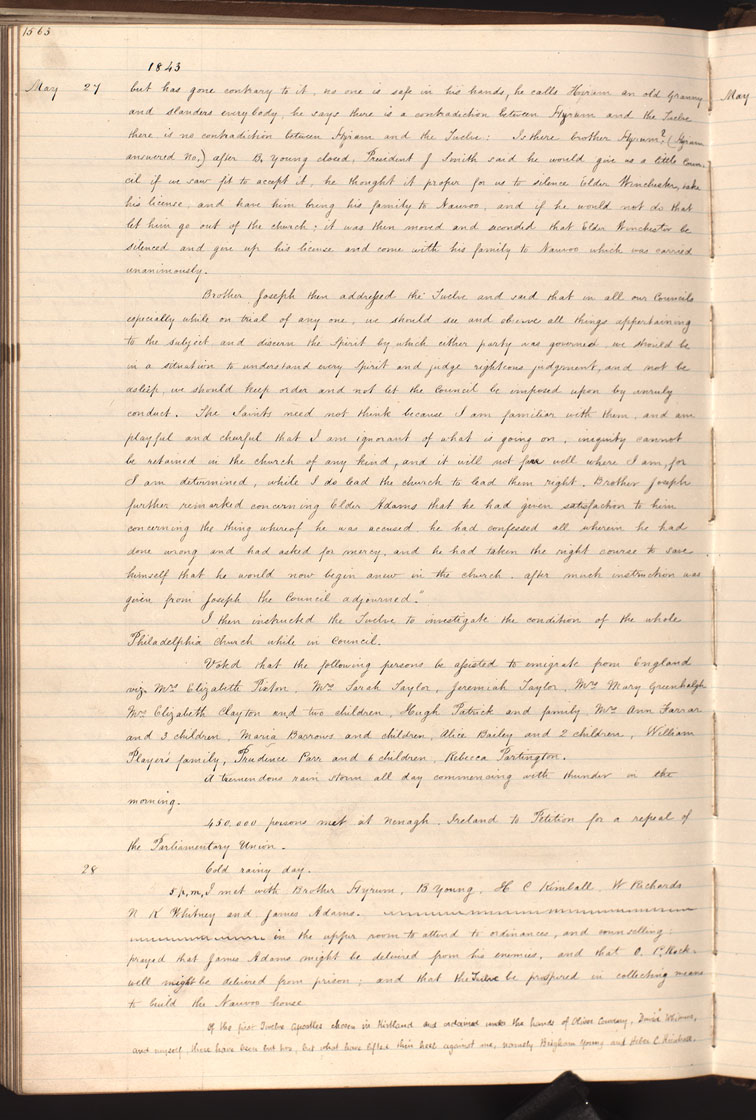 1563
1843
May 27 but has gone contrary to it, no one is safe in his hands, he calls Hyrum an old Granny
and slanders everybody, he says there is a contradiction between Hyrum and the Twelve
there is no contradiction between Hyrum and the Twelve: Is there brother Hyrum? (Hyrum
answered No,) after B. Young closed, President J Smith said he would give us a little Coun-
cil if we saw fit to accept it, he thought it proper for us to silence Elder Winchester, take
his license, and have him bring his family to Nauvoo, and if he would not do that
let him go out of the church; it was then moved and seconded that Elder Winchester be
silenced and give up his license and come with his family to Nauvoo which was carried
unanimously.
Brother Joseph then addressed the Twelve and said that in all our Councils
especially while on trial of any one, we should see and observe all things appertaining
to the subject, and discern the Spirit by which either party was governed, we should be
in a situation to understand every Spirit and judge righteous judgement, and not be
asleep, we should keep order and not let the Council be imposed upon by unruly
conduct. The Saints need not think because I am familiar with them, and am
playful and cheerful that I am ignorant of what is going on, iniquity cannot
be retained in the church of any kind, and it will not fare well where I am, for
I am determined, while I do lead the church to lead them right. Brother Joseph
further remarked concerning Elder Adams that he had given satisfaction to him
concerning the thing whereof he was accused, he had confessed all wherein he had
done wrong and had asked for mercy, and he had taken the right course to save
himself that he would now begin anew in the church. after much instruction was
given from Joseph the Council adjourned."
I then instructed the Twelve to investigate the condition of the whole
Philadelphia church while in Council.
Voted that the following persons be assisted to emigrate from England
viz. Mrs Elizabeth Pixton, Mrs Sarah Taylor, Jeremiah Taylor, Mrs Mary Greenhalgh
Mrs Elizabeth Clayton and two children, Hugh Patrick and family, Mrs Ann Farrar
and 3 children, Maria Barrows and children, Alice Bailey and 2 children, William
Player's family, Prudence Parr and 6 children, Rebecca Partington.
A tremendous rain storm all day commencing with thunder in the
morning.
450,000 persons met at Nenagh, Ireland to Petition for a repeal of
the Parliamentary Union.
28 Cold rainy day.
5 p,m, I met with Brother Hyrum, B Young, H C Kimball, W Richards
N K Whitney and James Adams.
in the upper room to attend to ordinances, and counselling.
prayed that James Adams might be delivered from his enemies, and that O. P. Rock-
well might be delivered from prison; and that the Twelve be prospered in collecting means
to build the Nauvoo house
Of the first Twelve Apostles chosen in Kirtland and ordained under the hands of Oliver Cowdery, David Whitmer,
and myself, there have been but two, but what have lifted their heel against me, namely Brigham Young and Heber C. Kimball.
May